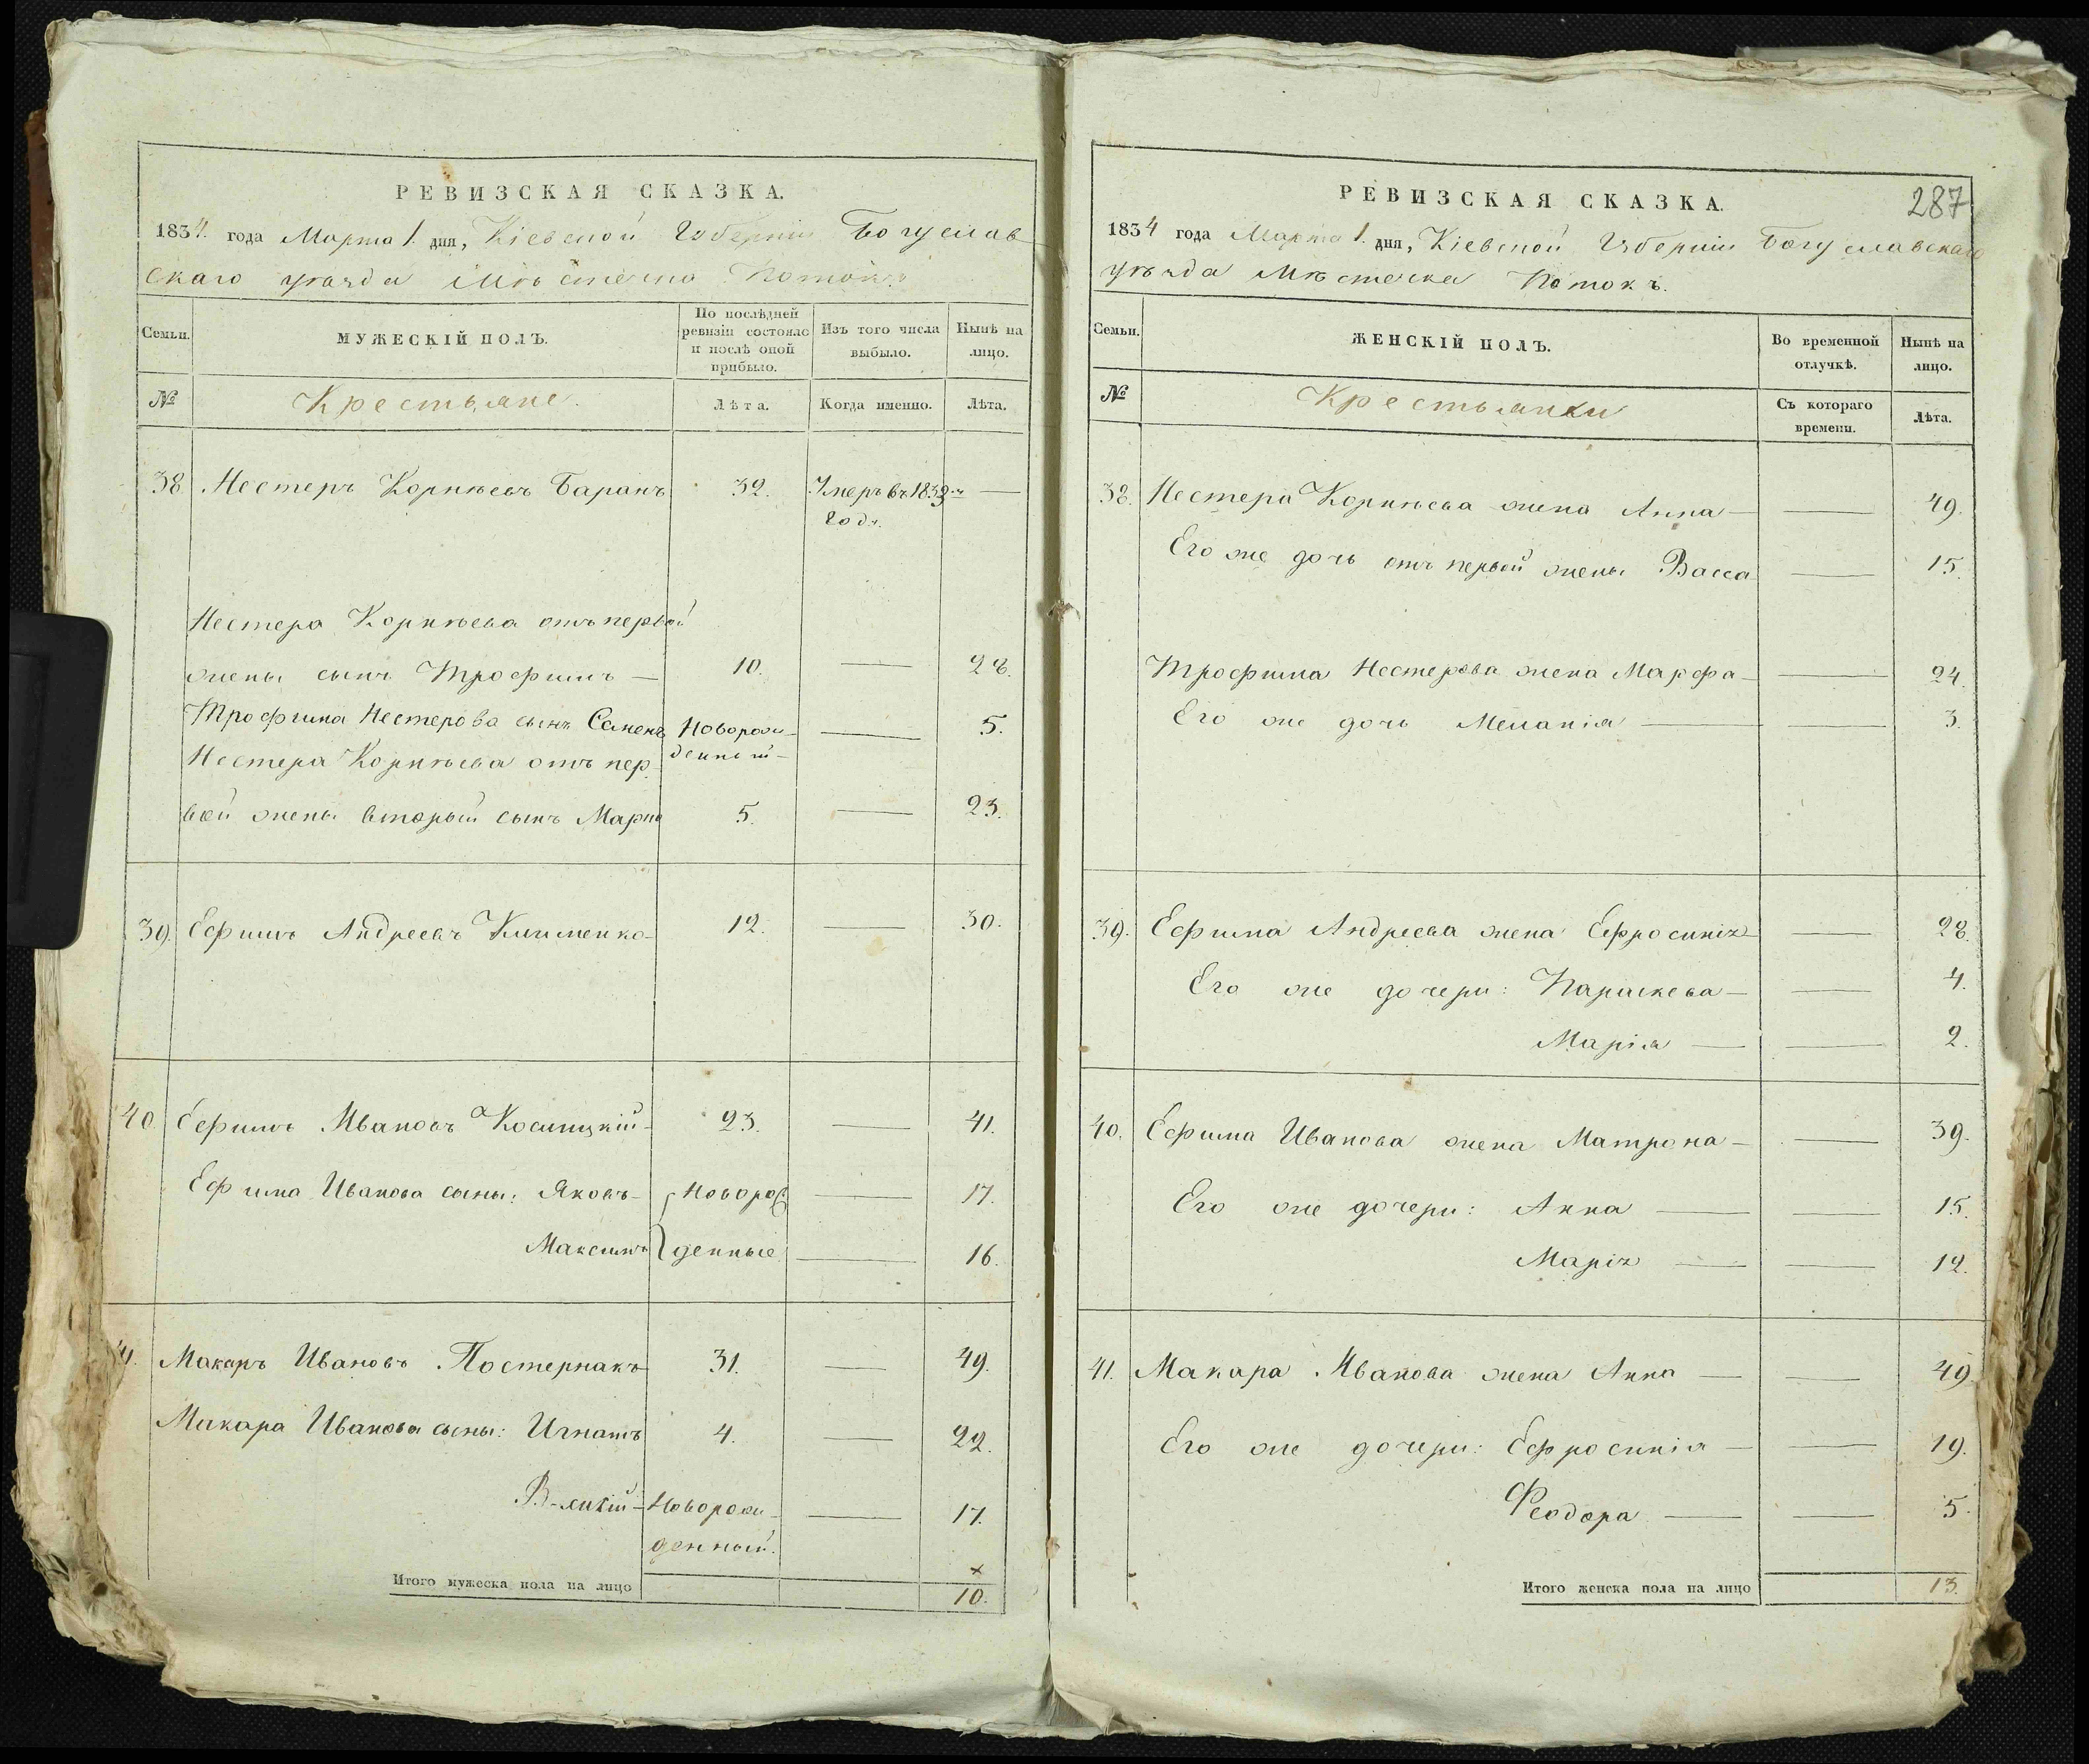 РЕВИЗСКАЯ СКАЗКА.
1834. года Марта 1. дня, Кіевской Губерніи Богуслав
скаго уѣзда Мѣстечка Потокъ.
Семьи.
МУЖЕСКІЙ ПОЛЪ.
По послѣдней ревизіи состояло и послѣ оной прибыло.
Изъ того числа выбыло.
Нынѣ на лицо.
№
Крестьяне.
Лѣта.
Когда именно.
Лѣта.
38 Нестеръ Корнѣевъ Баранъ 32. Умеръ въ 1832-м —
годѣ.
Нестера Корнѣева отъ первой
жены сынъ Трофимъ — 10. — 28.
Трофима Нестерова сынъ Семенъ Новорож- — 5.
Нестера Корнѣева отъ пер- денный —
вой жены вторый сынъ Марко 5. — 23.
39. Ефимъ Андреевъ Клименко — 12. — 30.
40. Ефимъ Ивановъ Косицкій — 23. — 41.
Ефима Иванова сыны: Яковъ — Новорож — 17.
Максимъ денные — 16.
41. Макаръ Ивановъ Постернакъ 31. — 49.
Макара Иванова сыны: Игнатъ 4. — 22.
Новорож- — 17.
денный.
Итого мужеска пола на лицо 10.
287
РЕВИЗСКАЯ СКАЗКА.
1834 года Марта 1. дня, Кіевской Губерніи Богуславскаго
уѣзда Мѣстечка Потокъ.
Семьи.
ЖЕНСКІЙ ПОЛЪ.
Во временной отлучкѣ.
Нынѣ на лицо.
№
Крестьянки
Съ котораго времени.
Лѣта.
38. Нестера Корнѣева жена Анна — — 49.
Его же дочь отъ первой жены Васса — 15.
Трофима Нестерова жена Марфа — — 24.
Его же дочь Меланія — — 3.
39. Ефима Андреева жена Ефросинія — 28.
Его же дочери: Параскева — — 4.
Марія — — 2.
40. Ефима Иванова жена Матрона — — 39.
Его же дочери: Анна — — 15.
Марія — — 12.
41. Макара Иванова жена Анна — — 49.
Его же дочери: Ефросинія — — 19.
Феодора — — 5.
Итого женска пола на лицо 13.